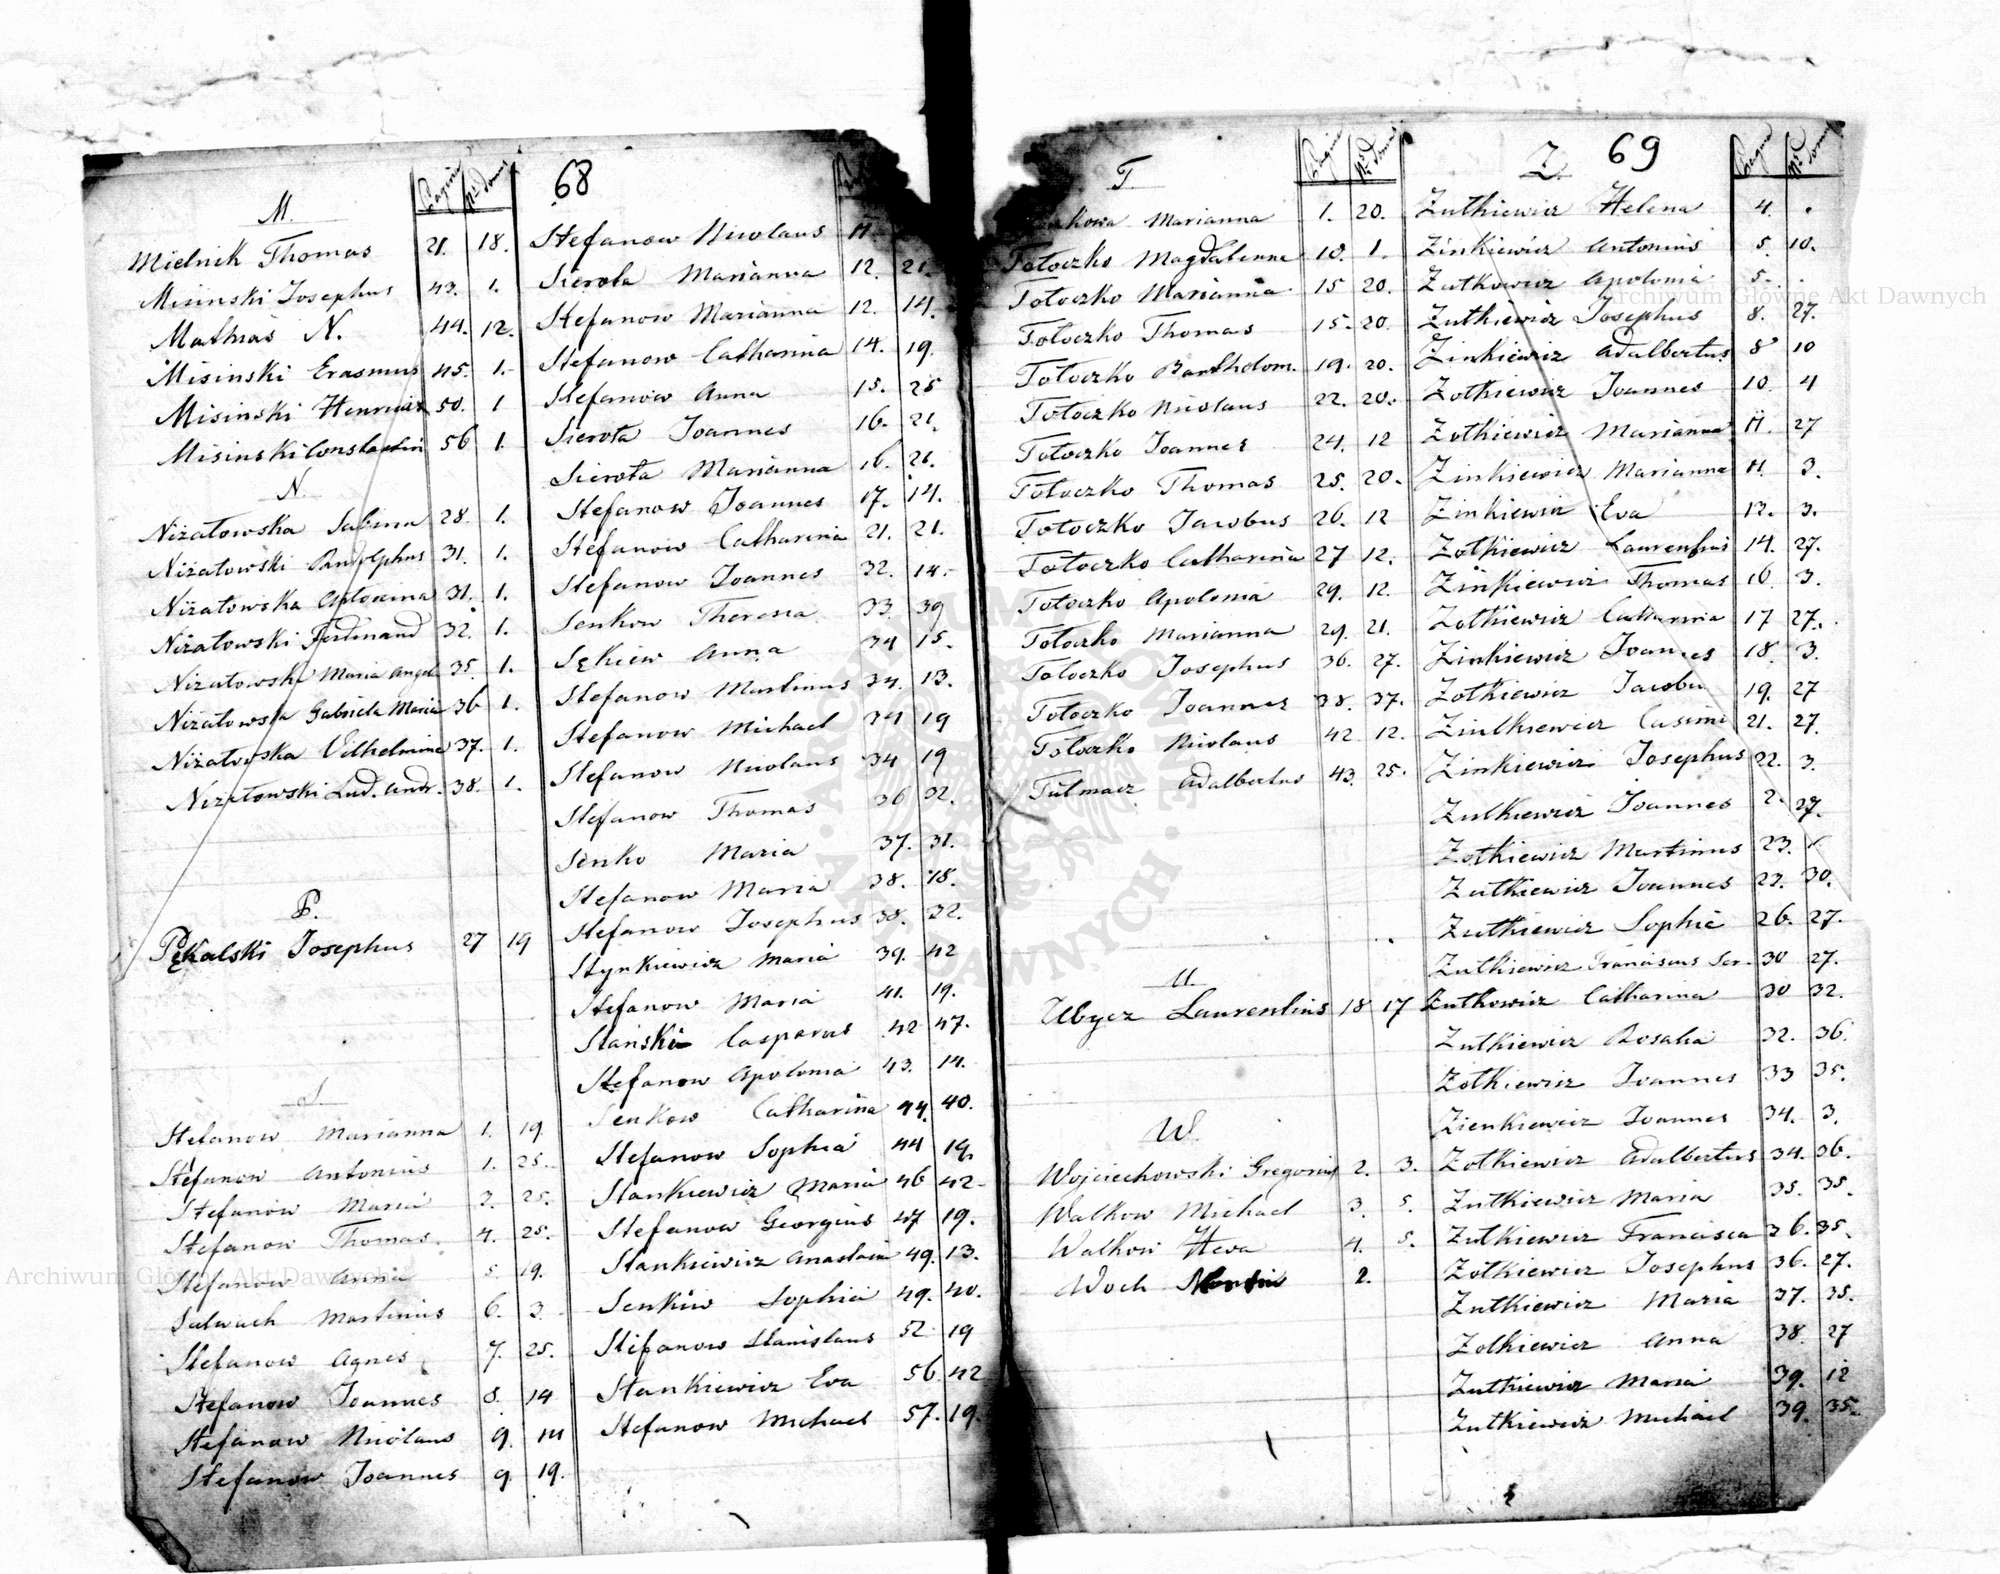 68
Pagina Nr. Domus
M.
Mielnik Thomas 21. 18.
Misinski Josephus 43. 1.
Mathias N. 44. 12.
Misinski Erasmus 45. 1.
Misinski Henricus 50. 1
Misinski Constantin 56 1.
N.
Nizatowska Sabina 28. 1.
Nizatowski Rudolphus 31. 1.
Nizatowska Antonina 31. 1.
Nizatowski Ferdinand 32. 1.
Nizatowska Maria Angel. 35. 1.
Nizatowska Gabriela Maria 36 1.
Nizatowska Vilhelmina 37. 1.
Nizatowski Lud. Andr. 38. 1.
P.
Pękalski Josephus 27 19
S
Stefanow Marianna 1. 19
Stefanow Antonius 1. 25.
Stefanow Maria 2. 25.
Stefanow Thomas. 4. 25.
Stefanow Anna 5. 19.
Salwach Martinus 6. 3
Stefanow Agnes 7. 25.
Stefanow Joannes 8. 14
Stefanow Nicolaus 9. 14
Stefanow Joannes 9. 19.
Stefanow Nicolaus 11
Sierota Marianna 12. 21.
Stefanow Marianna 12. 14.
Stefanow Catharina 14. 19.
Stefanow Anna 15. 25
Sierota Joannes 16. 21.
Sierota Marianna 16. 21.
Stefanow Joannes 17. 14.
Stefanow Catharina 21. 21.
Stefanow Joannes 32. 14.
Senkow Theresa 33. 39
Sękiew Anna 34 15.
Stefanow Martinus 34. 13.
Stefanow Michael 34 19
Stefanow Nicolaus 34 19
Stefanow Thomas 36 32.
Senko Maria 37. 31.
Stefanow Maria 38. 18.
Stefanow Josephus 38. 32.
Stynkiewicz Maria 39. 42
Stefanow Maria 41. 19.
Stanski Casparus 42 47.
Stefanow Apolonia 43. 14.
Senkow Catharina 44. 40.
Stefanow Sophia 44 19.
Stankiewicz Maria 46 42.
Stefanow Georgius 47 19.
Stankiewicz Anastasia 49. 13.
Senkiw Sophia 49. 40.
Stefanow Stanislaus 52 19
Stankiewicz Eva 56. 42
Stefanow Michael 57. 19.
69
T.
Pagina Nr. Domus
Marianna 1. 20.
Totoczko Magdalenna 10. 1.
Totoczko Marianna 15 20.
Totoczko Thomas 15. 20.
Totoczko Bartholom. 19. 20.
Totoczko Nicolaus 22. 20.
Totoczko Joannes 24. 12
Totoczko Thomas 25. 20.
Totoczko Jacobus 26. 12
Totoczko Catharina 27 12.
Totoczko Apolonia 29. 12.
Totoczko Marianna 29. 21.
Totoczko Josephus 36. 27.
Totoczko Joannes 38. 37.
Totoczko Nicolaus 42 12.
Tutmacz Adalbertus 43. 25.
U.
Ubycz Laurentius 18 17
W.
Wojciechowski Gregorius 2. 3.
Walkow Michael 3. 5.
Walkow Heva 4. 5.
Woch 2.
Z.
Pagina Nr. Domus
Zutkiewicz Helena 4.
Zinkiewicz Antonius 5. 10.
Zutkowicz Apolonia 5.
Zutkiewicz Josephus 8. 27.
Zinkiewicz Adalbertus 8 10
Zotkiewicz Joannes 10. 4
Zotkiewicz Marianna 11. 27
Zinkiewicz Marianna 11. 3.
Zinkiewicz Eva 12. 3.
Zotkiewicz Laurentius 14. 27.
Zinkiewicz Thomas 16 3.
Zotkiewicz Catharina 17 27.
Zinkiewicz Joannes 18. 3.
Zotkiewicz Jacobu 19. 27
Ziulkiewicz Casimi 21. 27.
Zinkiewicz Josephus 22. 3.
Zulkiewicz Joannes 2. 27.
Zotkiewicz Martinus 23.
Zutkiewicz Joannes 23. 30.
Zutkiewicz Sophie 26. 27.
Zutkiewicz Franciscus Ser. 30 27.
Zutkowicz Catharina 30 32.
Zutkiewicz Rosalia 32. 36.
Zotkiewicz Joannes 33 35.
Zienkiewicz Joannes 34. 3.
Zotkiewicz Adalbertus 34. 36.
Zutkiewicz Maria 35. 35.
Zutkiewicz Francisca 36. 35.
Zotkiewicz Josephus 36. 27.
Zutkiewicz Maria 37. 35.
Zolkiewicz Anna 38. 27
Zutkiewicz Maria 39. 12
Zutkiewicz Michael 39. 35.
Archiwum Główne Akt Dawnych
Archiwum Główne Akt Dawnych